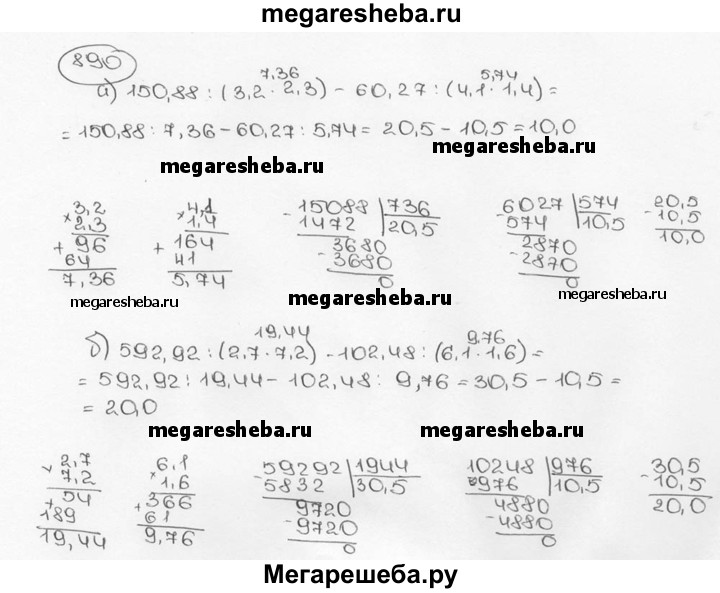 megaresheba.ru
890
7,36 5,74
а) 150,88 : (3,2 · 2,3) - 60,27 : (4,1 · 1,4) =
= 150,88 : 7,36 - 60,27 : 5,74 = 20,5 - 10,5 = 10,0
megaresheba.ru megaresheba.ru
3,2 4,1 15088 736 6027 574 20,5
× 2,3 × 1,4 - 1472 20,5 - 574 10,5 - 10,5
+ 96 + 164 3680 2870 10,0
64 41 - 3680 - 2870
7,36 5,74 0 0
megaresheba.ru megaresheba.ru megaresheba.ru
19,44 9,76
б) 592,92 : (2,7 · 7,2) - 102,48 : (6,1 · 1,6) =
= 592,92 : 19,44 - 102,48 : 9,76 = 30,5 - 10,5 =
= 20,0
megaresheba.ru megaresheba.ru
2,7 6,1 59292 1944 10248 976 30,5
× 7,2 × 1,6 - 5832 30,5 - 976 10,5 - 10,5
+ 54 + 366 9720 4880 20,0
189 61 - 9720 - 4880
19,44 9,76 0 0
Мегарешеба.ру